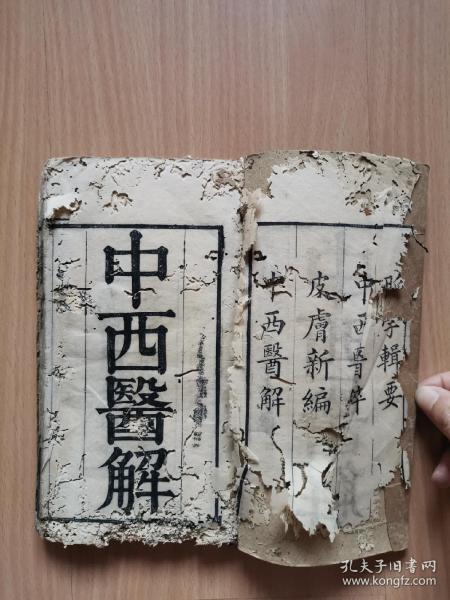 眼學輯要
中西醫粹
皮膚新編
中西醫解
中西醫解
孔夫子旧书网
www.kongfz.com